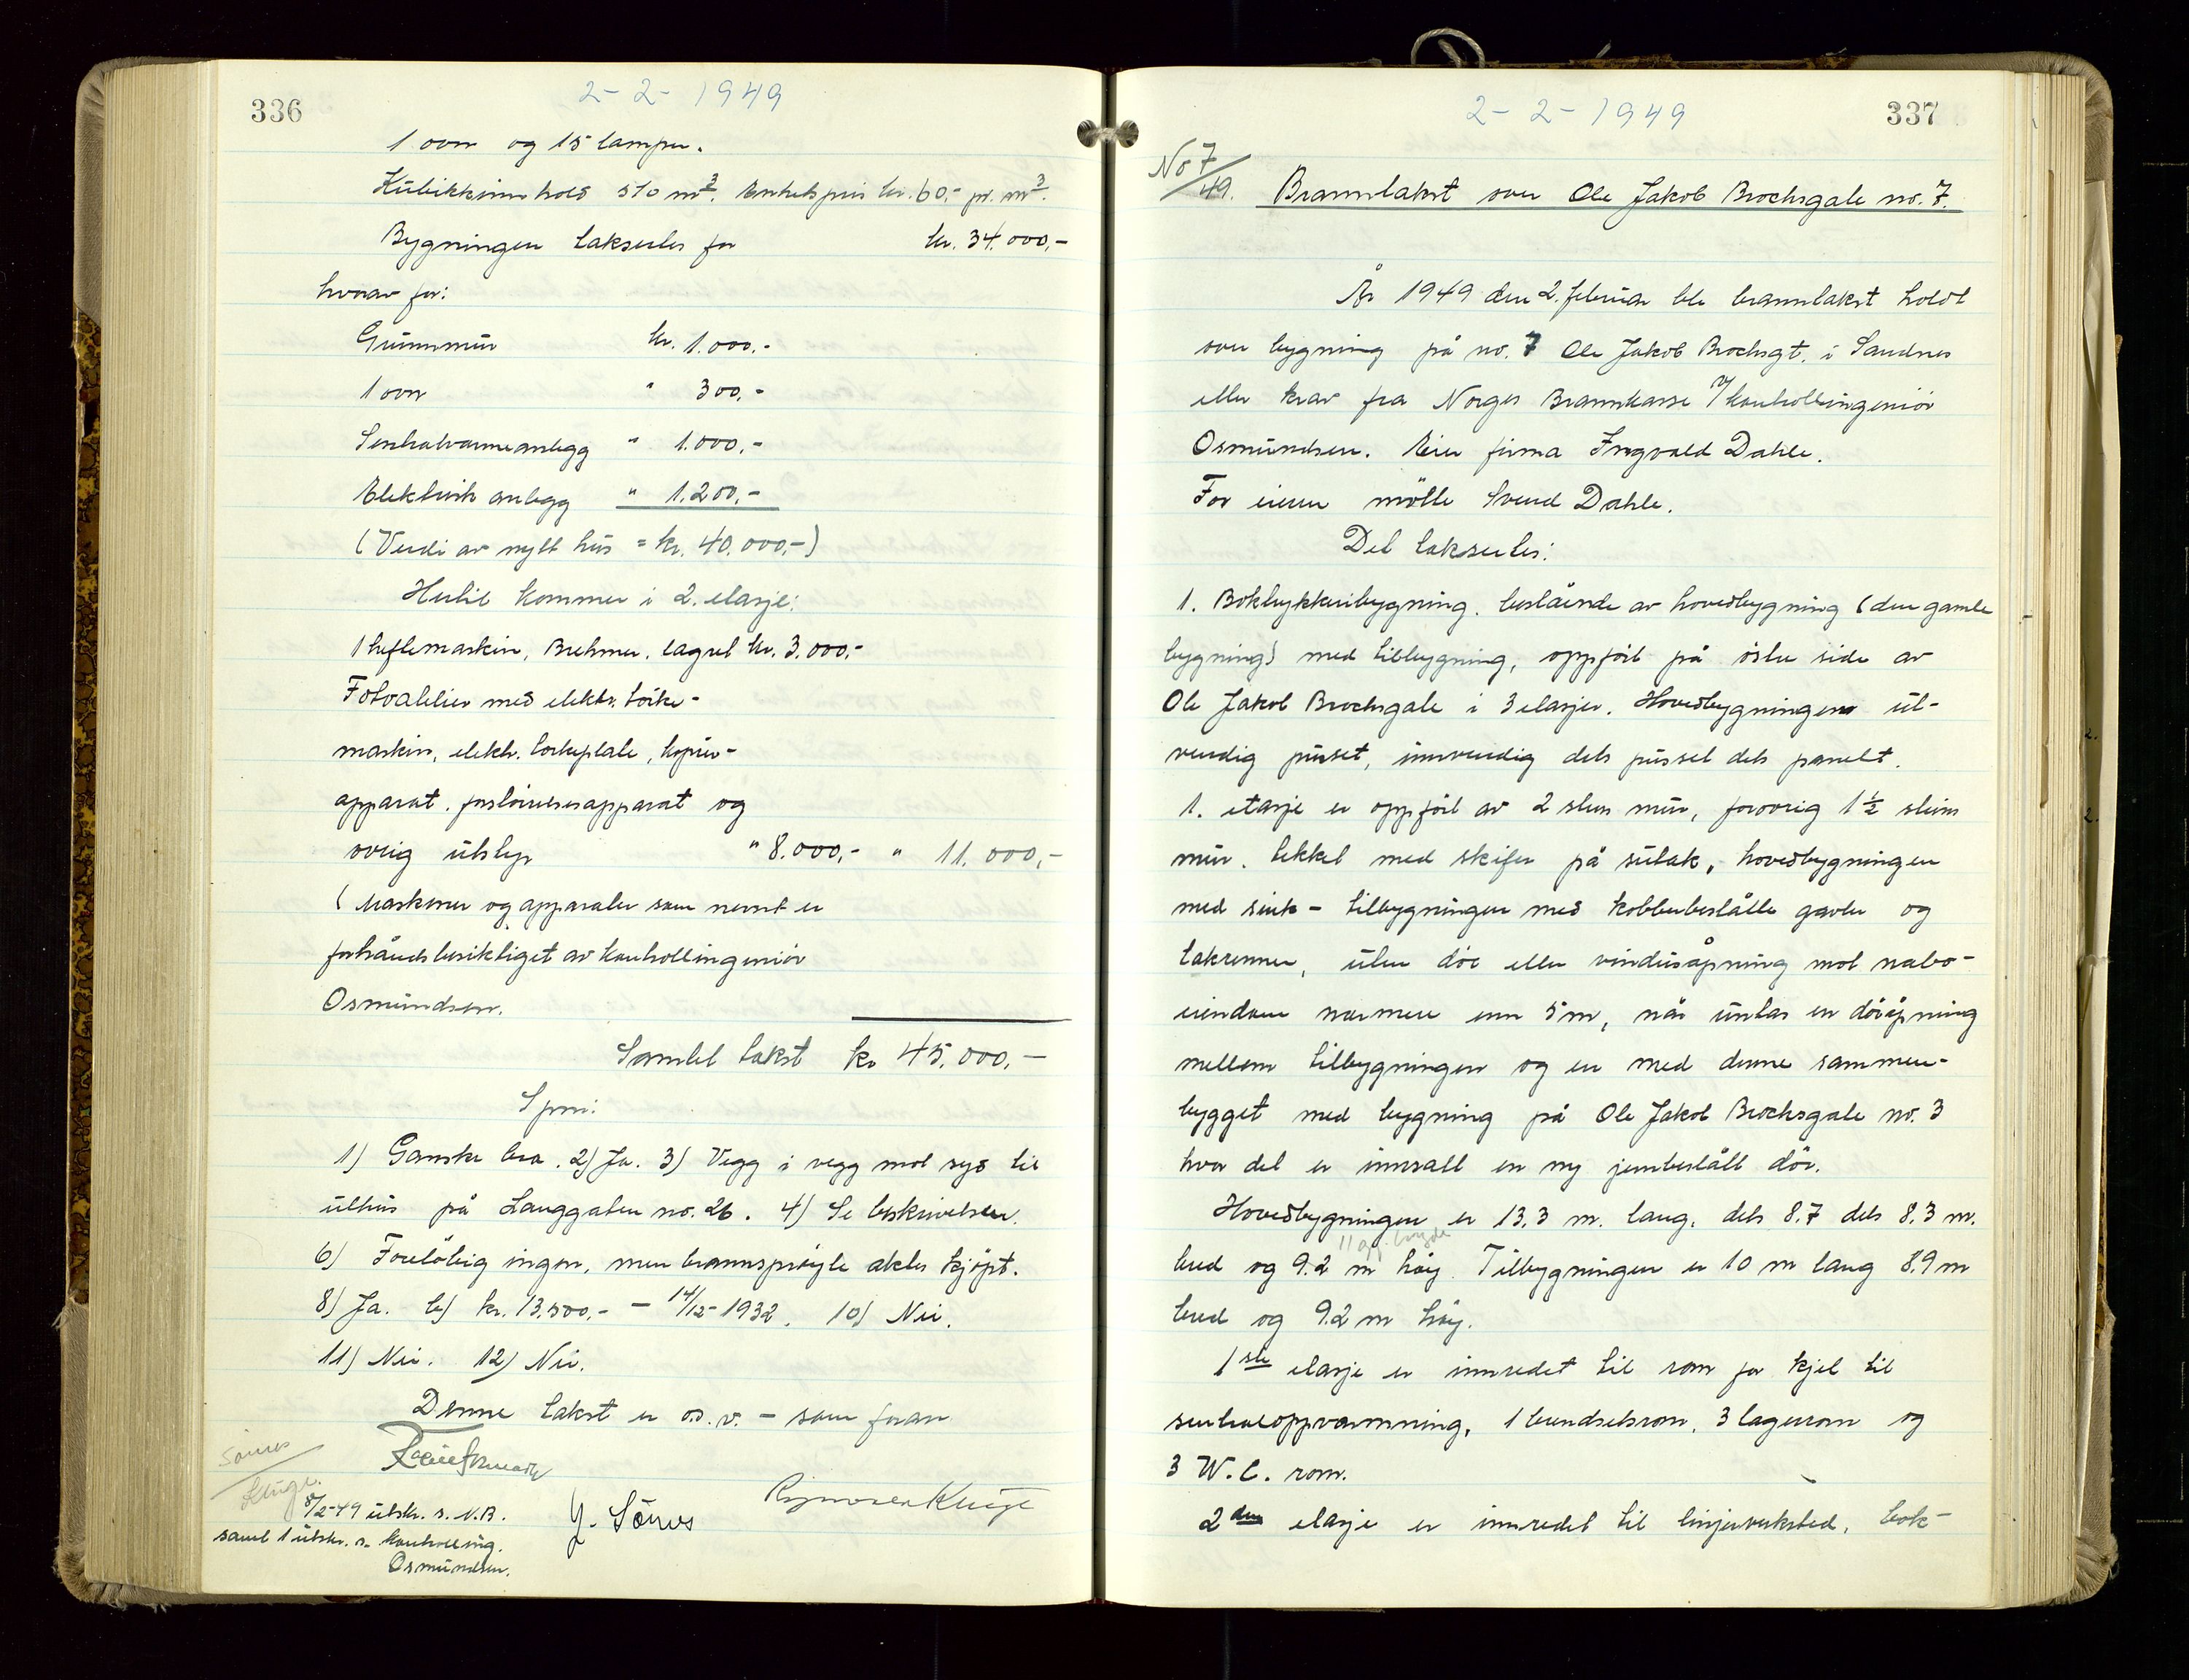 336
2-2-1949
1 ovn og 15 lamper.
Kubikkinnhold 570 m³. Enhetspris kr. 60,- pr. m³.
Bygningen takseres for kr. 34.000,-
hvorav for:
Grunnmur kr. 1.000,-
1 ovn " 300,-
Sentralvarmeanlegg " 1.000,-
Elektrisk anlegg " 1.200,-
(Verdi av nytt hus = kr. 40.000,-)
Hertil kommer i 2. etasje:
1 heftemaskin, Brehmer, tagret kr. 3.000,-
Fotoatelier med elektr. törke-
maskin, elektr. törkeplate, kopier-
apparat, forstörrelsesapparat og
övrig utstyr " 8.000,- " 11.000,-
(Maskiner og apparater som nevnt er
forhåndsbesiktiget av kontrollingeniör
Osmundsen.
Samlet takst kr 45.000,-
Spm:
1) Ganske bra. 2) Ja. 3) Vegg i vegg mot syd til
uthus på Langgaten no. 26. 4) Se beskrivelsen.
6) Forelöbig ingen, men brannspröyte aktes kjöpt.
8) Ja. b) kr. 13.500,- - 14/12-1932. 10) Nei.
11) Nei. 12) Nei.
Denne takst er o.s.v. - som foran
Sömes
Kluge.
8/2-49 utskr. s. N.B.
samt 1 utskr. s. kontrolling.
Osmundsen.
Rasmussen Kluge
337
2-2-1949
No 7/49. Branntakst over Ole Jakob Brochsgate no. 7.
År 1949 den 2. februar ble branntakst holdt
over bygning på no. 7 Ole Jakob Brochsgt. i Sandnes
etter krav fra Norges Brannkasse v/kontrollingeniör
Osmundsen. Eier firma Ingvald Dahle.
For eieren mötte Svend Dahle.
Det takseres:
1. Boktrykkeribygning. bestående av hovedbygning (den gamle
bygning) med tilbygning, oppfört på östre side av
Ole Jakob Brochsgate i 3 etasjer. Hovedbygningen ut-
vendig pusset, innvendig dels pusset dels panelt.
1. etasje er oppfört av 2 stens mur, forövrig 1½ stens
mur. tekket med skifer på sutak, hovedbygningen
med sink - tilbygningen med kobberbeslåtte gavler og
takrenner, uten dör eller vindusåpning mot nabo-
eiendom nærmere enn 5 m, når untas en döråpning
mellom tilbygningen og en med denne sammen-
bygget med bygning på Ole Jakob Brochsgate no. 3
hvor det er innsatt en ny jernbeslått dör.
Hovedbygningen er 13,3 m. lang, dels 8,7 dels 8,3 m.
bred og 9.2 m höy. Tilbygningen er 10 m lang 8.9 m
bred og 9.2 m höy.
1ste etasje er innredet til rom for kjel til
sentraloppvarmning, 1 brendselsrom, 3 lagerrom og
3 W.C. rom.
2den etasje er innredet til linjerverksted, bok-